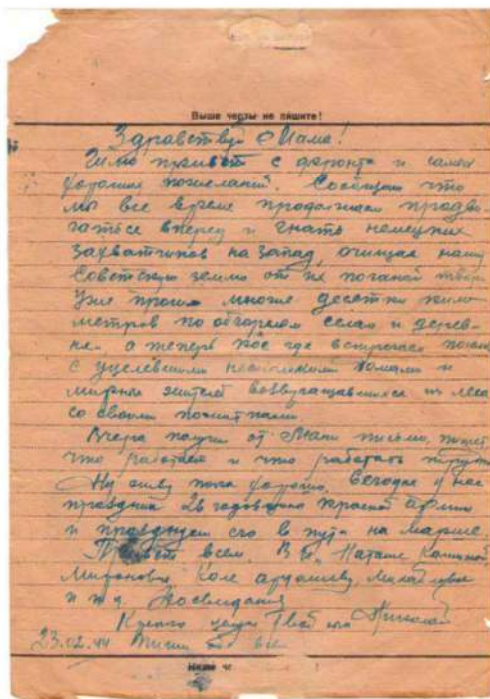 Выше черты не пишите!
Здравствуй Мама!
Шлю привет с фронта и самых
хороших пожеланий. Сообщаю что
мы все время продолжаем продви
гаться вперед и гнать немецких
захватчиков на запад, очищая нашу
Советскую землю от их поганой
Уже прошли многие десятки кило
метров по обгорелым селам и дерев
ням а теперь кое где встречаем
с уцелевшими несколькими домами и
мирных жителей возвращавшихся из леса
со своими пожитками.
Вчера получил от Мани письмо, пишет,
что работает и что работать
Ну живу пока хорошо. Сегодня у нас
праздник 26 годовщина Красной армии
и празднуем его в пути на марше.
Привет всем. Наташе
Коле
и т.д. Досвидания
Крепко целую Твой сын Николай
23.02.44 Пиши обо всем
Ниже